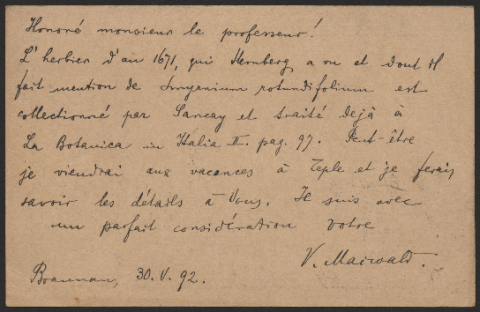 Honoré monsieur le professeur!
L'herbier d'an 1671, qui Sternberg a vu et dont il
fait mention de Smyrnium rotundifolium est
collectionné par et traité dejà à
La Botanica in Italia II. pag. 97. Peut-être
je viendrai aux vacances à Teple et je ferais
savoir les détails à Vous. Je suis avec
un parfait considération votre
V. Maiwald.
Braunau, 30. V. 92.